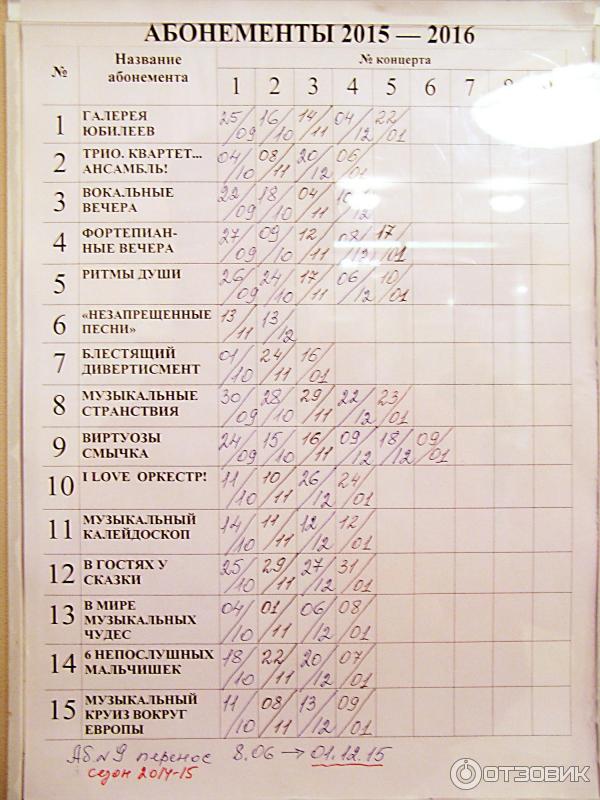 АБОНЕМЕНТЫ 2015 — 2016
№ Название абонемента № концерта
1 2 3 4 5 6 7
1 ГАЛЕРЕЯ ЮБИЛЕЕВ 25/09 16/10 14/11 04/12 22/01
2 ТРИО. КВАРТЕТ... АНСАМБЛЬ! 04/10 08/11 20/12 06/01
3 ВОКАЛЬНЫЕ ВЕЧЕРА 22/09 18/10 04/11
4 ФОРТЕПИАН-НЫЕ ВЕЧЕРА 27/09 09/10 12/11 08/12 17/01
5 РИТМЫ ДУШИ 26/09 24/10 17/11 06/12 10/01
6 «НЕЗАПРЕЩЕННЫЕ ПЕСНИ» 13/11 13/2
7 БЛЕСТЯЩИЙ ДИВЕРТИСМЕНТ 01/10 24/11 16/01
8 МУЗЫКАЛЬНЫЕ СТРАНСТВИЯ 30/09 28/10 29/11 22/12 23/01
9 ВИРТУОЗЫ СМЫЧКА 24/09 15/10 16/11 09/12 18/12 09/01
10 I LOVE ОРКЕСТР! 11/10 10/11 26/12 24/01
11 МУЗЫКАЛЬНЫЙ КАЛЕЙДОСКОП 14/10 11/11 12/12 12/01
12 В ГОСТЯХ У СКАЗКИ 25/10 29/11 27/12 31/01
13 В МИРЕ МУЗЫКАЛЬНЫХ ЧУДЕС 04/10 01/11 06/12 08/01
14 6 НЕПОСЛУШНЫХ МАЛЬЧИШЕК 18/10 22/11 20/12 07/01
15 МУЗЫКАЛЬНЫЙ КРУИЗ ВОКРУГ ЕВРОПЫ 11/10 08/11 13/12 09/01
Аб №9 перенос 8.06 → 01.12.15
сезон 2014-15
ОТЗОВИК